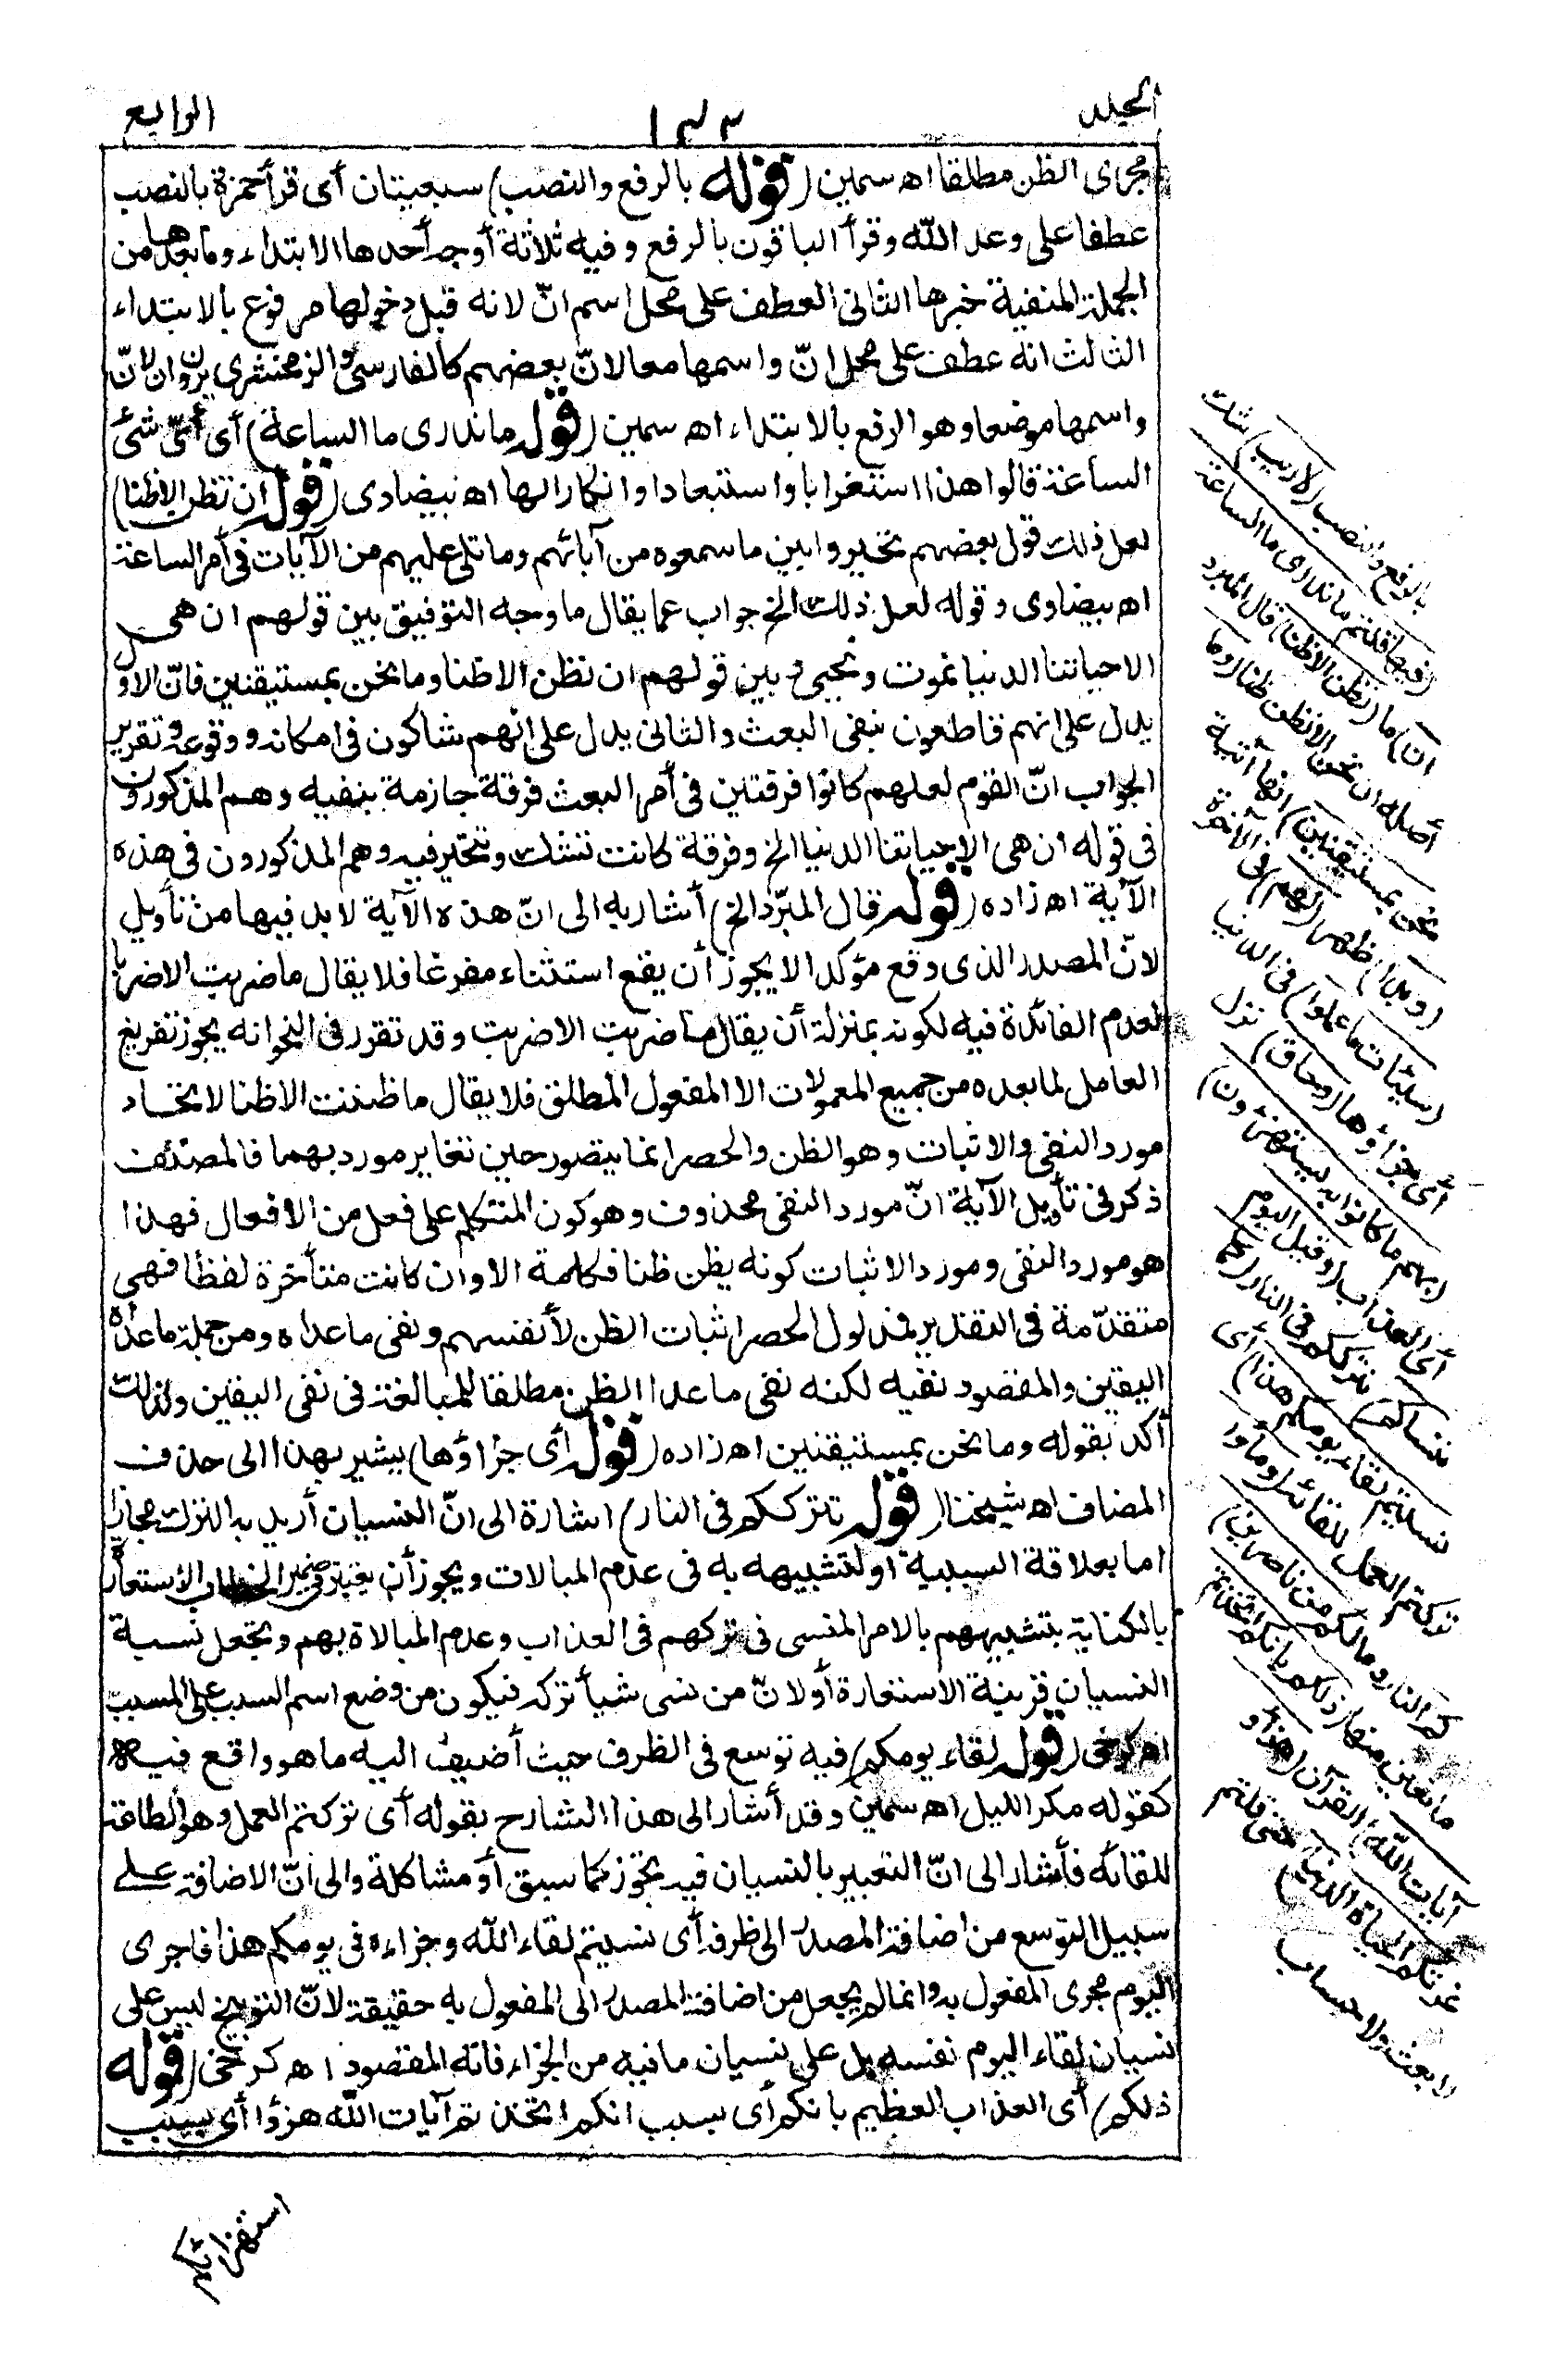 المجلد
١٣٢
الرابع
مجرى الظن مطلقا اه سمين (قوله بالرفع والنصب) سبعيتان أى قرأ حمزة بالنصب
عطفا على وعد الله وقرأ الباقون بالرفع وفيه ثلاثة أوجه أحدها الابتداء وما بعدها من
الجملة المنفية خبرها الثانى العطف على محل اسم انّ لانه قبل دخولها مرفوع بالابتداء
الثالث انه عطف على محل انّ واسمها معا لانّ بعضهم كالفارسى والزمخشرى يرون ان لانّ
واسمها موضعا وهو الرفع بالابتداء اه سمين (قوله ما ندرى ما الساعة) أى أىّ شئ
الساعة قالوا هذا استغرابا واستبعادا وانكارا لها اه بيضاوى (قوله ان نظن الا ظنا)
لعل ذلك قول بعضهم تحيروا بين ما سمعوه من آبائهم وما تلى عليهم من الآيات فى أمر الساعة
اه بيضاوى وقوله لعل ذلك الخ جواب عما يقال ما وجه التوفيق بين قولهم ان هى
الا حياتنا الدنيا نموت ونحيى وبين قولهم ان نظن الا ظنا وما نحن بمستيقنين فانّ الاول
يدل على انهم قاطعون بنفى البعث والثانى يدل على انهم شاكون فى امكانه ووقوعه وتقرير
الجواب انّ القوم لعلهم كانوا فرقتين فى أمر البعث فرقة جازمة بنفيه وهم المذكورون
فى قوله ان هى الا حياتنا الدنيا الخ وفرقة كانت تشك وتتحير فيه وهم المذكورون فى هذه
الآية اه زاده (قوله قال المبرّد الخ) أشار به الى انّ هذه الآية لا بد فيها من تأويل
لانّ المصدر الذى وقع مؤكدا لا يجوز أن يقع استثناء مفرغا فلا يقال ما ضربت الا ضربا
لعدم الفائدة فيه لكونه بمنزلة أن يقال ما ضربت الا ضربت وقد تقرر فى النحو انه يجوز تفريغ
العامل لما بعده من جميع المعمولات الا المفعول المطلق فلا يقال ما ظننت الا ظنا لاتحاد
مورد النفى والاثبات وهو الظن والحصر انما يتصور حين تغاير مورد بهما فالمصنف
ذكر فى تأويل الآية انّ مورد النفى محذوف وهو كون المتكلم على فعل من الافعال فهذا
هو مورد النفى ومورد الاثبات كونه يظن ظنا فكلمة الا وان كانت متأخرة لفظا فهى
متقدّمة فى التقدير فمدلول الحصر اثبات الظن لأنفسهم ونفى ما عداه ومن جملة ما عداه
اليقين والمقصود نفيه لكنه نفى ما عدا الظن مطلقا للمبالغة فى نفى اليقين ولذلك
أكد بقوله وما نحن بمستيقنين اه زاده (قوله أى جزاؤها) يشير بهذا الى حذف
المضاف اه شيخنا (قوله نترككم فى النار) اشارة الى انّ النسيان أريد به الترك مجازا
اما بعلاقة السببية أو لتشبيهه به فى عدم المبالات ويجوز أن يعتبر فى ضمير الخطاب الاستعارة
بالكناية بتشبيههم بالامر المنسى فى تركهم فى العذاب وعدم المبالاة بهم وتجعل نسبة
النسيان قرينة الاستعارة أو لانّ من نسى شيأ تركه فيكون من وضع اسم السبب على المسبب
اه كرخى (قوله لقاء يومكم) فيه توسع فى الظرف حيث أضيف اليه ما هو واقع فيه
كقوله مكر الليل اه سمين وقد أشار الى هذا الشارح بقوله أى تركتم العمل وهو الطاعة
للقائه فأشار الى انّ التعبير بالنسيان فيه تجوز كما سبق أو مشاكلة والى انّ الاضافة على
سبيل التوسع من اضافة المصدر الى ظرفه أى نسيتم لقاء الله وجزاءه فى يومكم هذا فاجرى
اليوم مجرى المفعول به وانما لم يجعل من اضافة المصدر الى المفعول به حقيقة لانّ التوبيخ ليس على
نسيان لقاء اليوم نفسه بل على نسيان ما فيه من الجزاء فانه المقصود اه كرخى (قوله
ذلكم) أى العذاب العظيم بانكم أى بسبب انكم اتخذتم آيات الله هزؤا أى بسبب
استهزائكم
بالرفع والنصب (لا ريب) شك
(فيها قلتم ما ندرى ما الساعة
ان) ما (نظن الا ظنا) قال المبرد
أصله ان نحن الا نظن ظنا (وما
نحن بمستيقنين) انها آتية
(وبدا) ظهر (لهم) فى الآخرة
(سيئات ما عملوا) فى الدنيا
أى جزاؤها (وحاق) نزل
(بهم ما كانوا به يستهزؤن)
أى العذاب (وقيل اليوم
ننساكم) نترككم فى النار (كما
نسيتم لقاء يومكم هذا) أى
تركتم العمل للقائه (ومأوا
كم النار وما لكم من ناصرين)
مانعين منها (ذلكم بانكم اتخذتم
آيات الله) القرآن (هزؤا و
غرتكم الحياة الدنيا) حتى قلتم
لا بعث ولا حساب